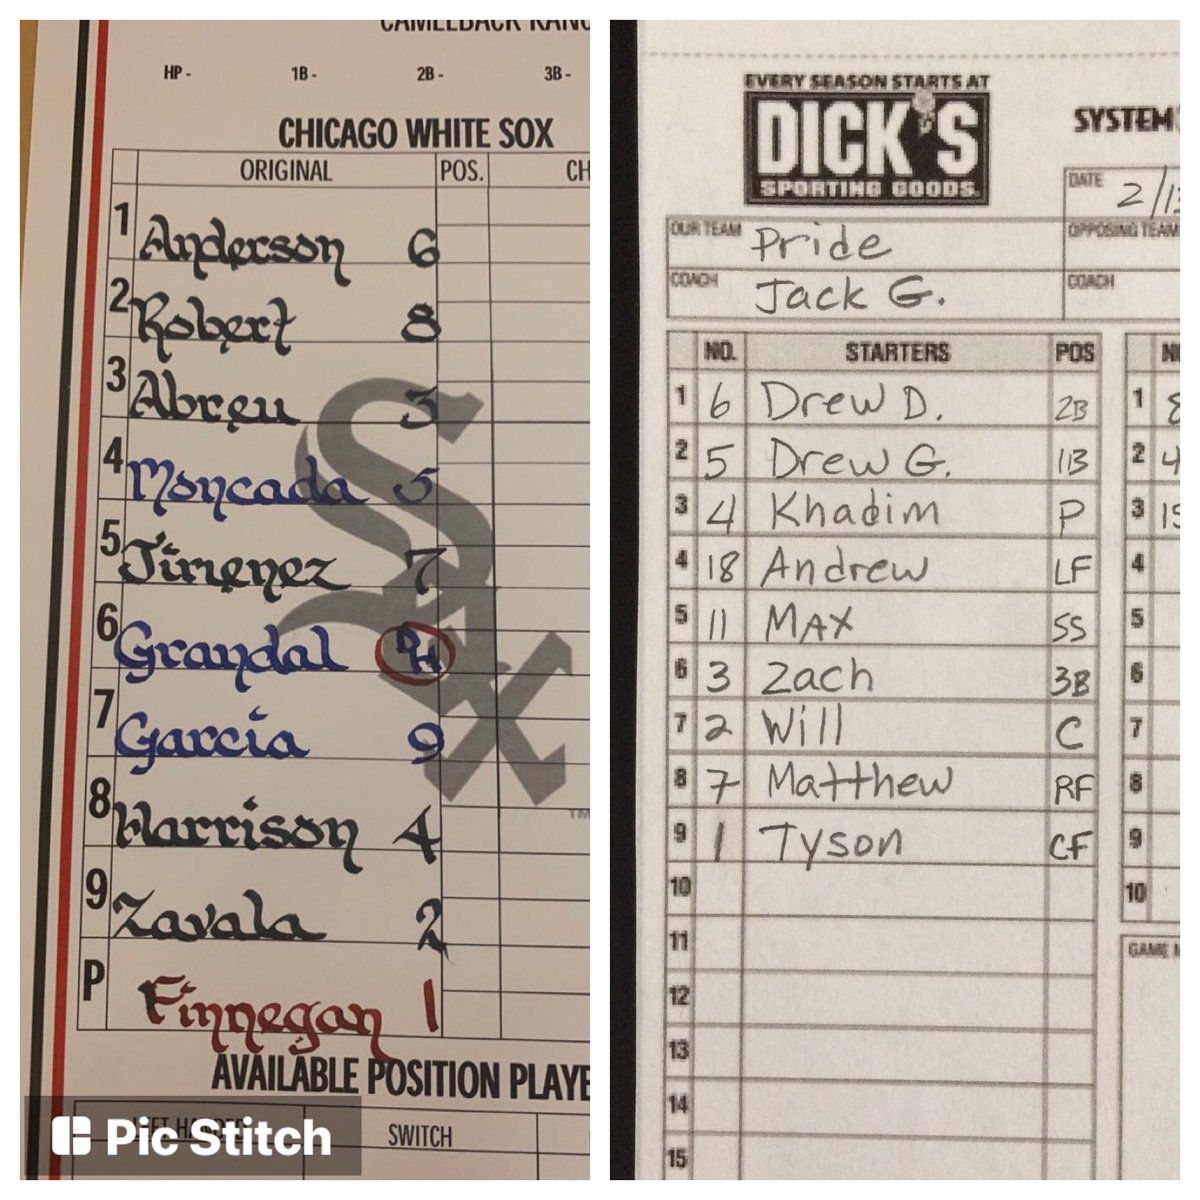 CAMELBACK RANC
HP - 1B - 2B - 3B -
CHICAGO WHITE SOX
ORIGINAL POS. CH
1 Anderson 6
2 Robert 8
3 Abreu 3
4 Moncada 5
5 Jimenez 7
6 Grandal DH
7 Garcia 9
8 Harrison 4
9 Zavala 2
P Finnegan 1
AVAILABLE POSITION PLAYE
SWITCH
Pic Stitch
EVERY SEASON STARTS AT
DICK'S
SPORTING GOODS
SYSTEM
DATE 2/13
OUR TEAM Pride OPPOSING TEAM
COACH Jack G. COACH
NO. STARTERS POS
1 6 Drew D. 2B 1 8
2 5 Drew G. 1B 2 4
3 4 Khadim P 3 15
4 18 Andrew LF 4
5 11 MAX SS 5
6 3 Zach 3B 6
7 2 Will C 7
8 7 Matthew RF 8
9 1 Tyson CF 9
10 10
11 GAME
12
13
14
15